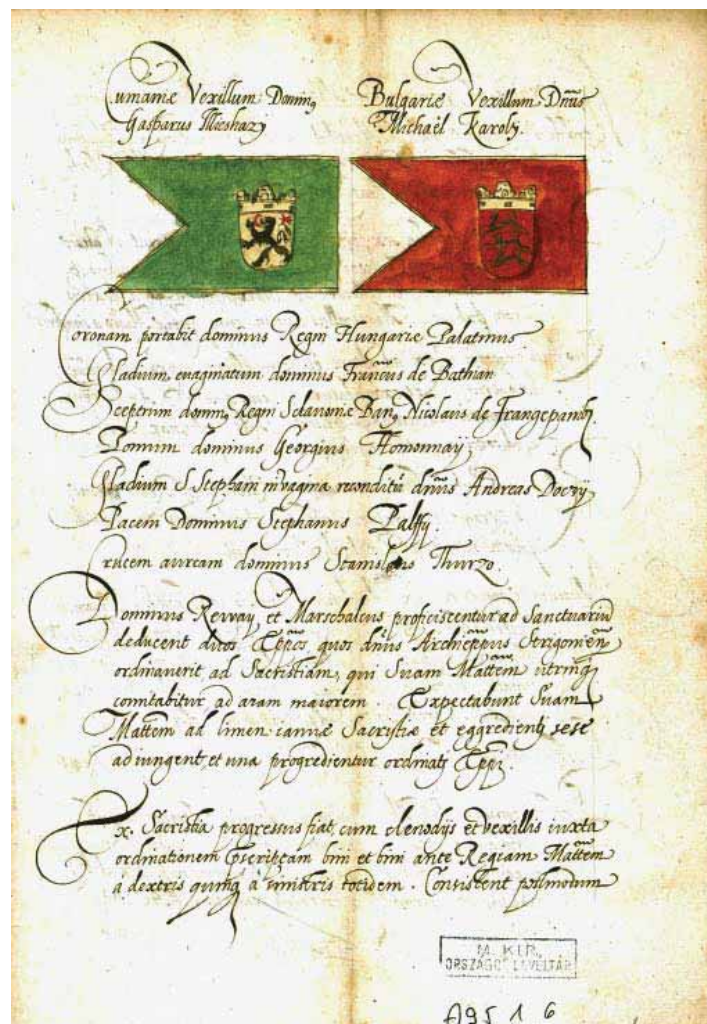 Cumaniæ Vexillum Domin9
Gasparus Illieshazÿ
Bulgariæ Vexillum Dnūs
Michaël Karolÿ.
Coronam portabit dominus Regni Hungariæ Palatinus
Gladium evaginatum dominus Francūs de Bathian
Sceptrum domin9 Regni Sclavoniæ Ban9 Nicolaus de Frangepanibus
Pomum dominus Georgius Homonnay
Gladium S Stephani in vagina reconditū dnūs Andreas Doczÿ
Pacem Dominus Stephanus Palffÿ.
Crucem auream dominus Stanislaus Thurzo.
Dominus Reway, et Marschalcus proficiscentur ad Sanctuariū
deducent duos Eppōs quos dnūs Archieppūs Strigonieñ
ordinaverit ad Sacristiam, qui Suam Mattēm utrinq
comitabitur ad aram maiorem. Expectabunt Suam
Mattēm ad limen ianuæ Sacristiæ et eggredienti sese
adiungent, et una progredientur ordinatj Eppj.
Ex Sacristia progressus fiat, cum clenodijs et vexillis iuxta
ordinationem bini et bini ante Regiam Mattēm
à dextris quinq à sinistris totidem. Consistent postmodum
M. KIR.
ORSZÁGOS LEVÉLTÁR
A95 1 6